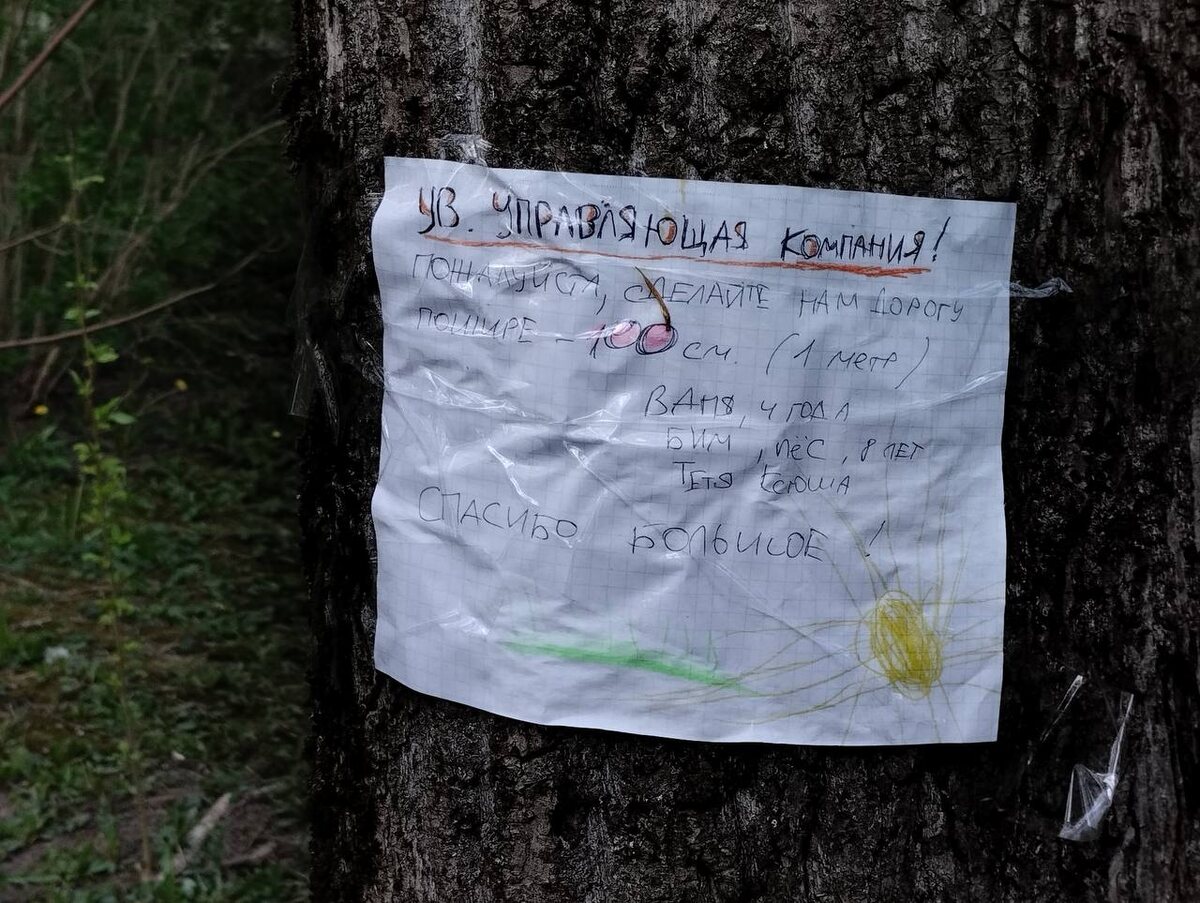 УВ. УПРАВЛЯЮЩАЯ КОМПАНИЯ!
ПОЖАЛУЙСТА, СДЕЛАЙТЕ НАМ ДОРОГУ
ПОШИРЕ - 100 см. (1 метр)
ВАНЯ, 4 ГОДА
БИМ, ПЁС, 8 ЛЕТ
ТЕТЯ КСЮША
СПАСИБО БОЛЬШОЕ!